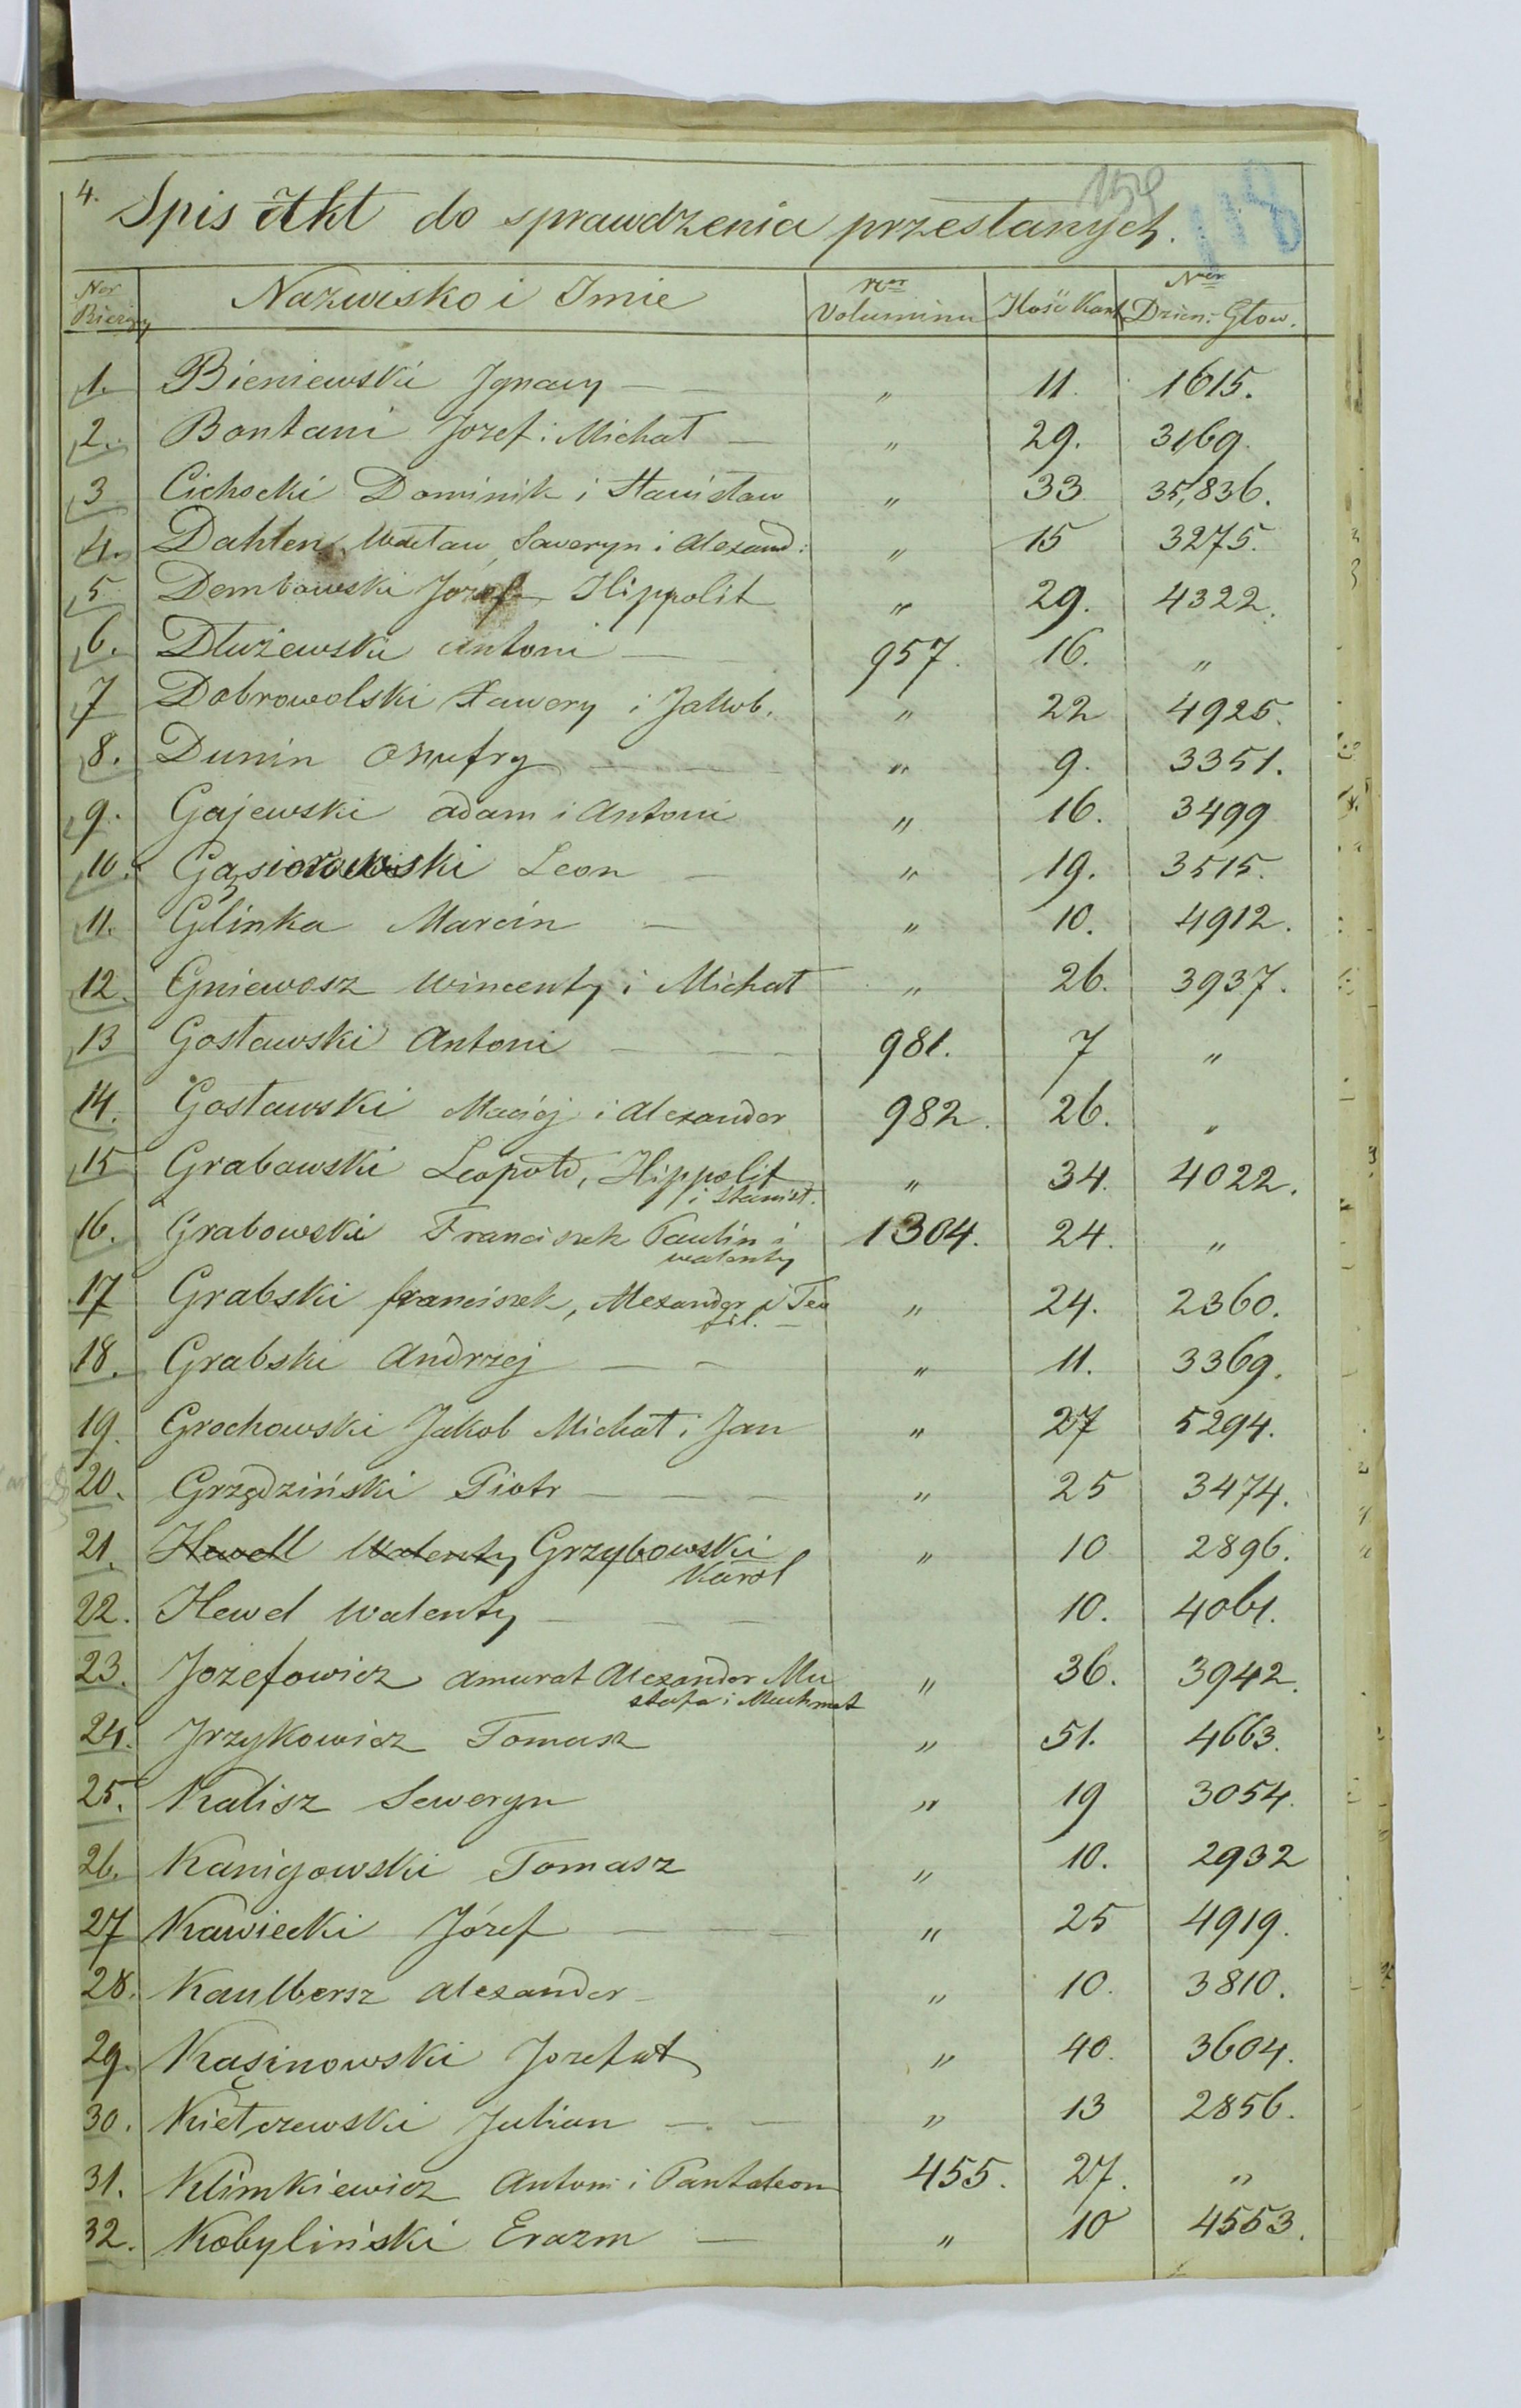 4. Spis Akt do sprawdzenia przesłanych.
159
118
Ner Bieżący Nazwisko i Imie Ner Voluminu Ilość Kart Ner Dzien: Głow.
1. Bieniewski Ignacy — — " 11. 1615.
2. Bontani Jozef i Michał — " 29. 3169.
3 Cichocki Dominik i Stanisław " 33 35,836.
4. Dahlen Wacław, Saweryn i Alexand: " 15 3275.
5 Dembowski Jozef Hippolit " 29. 4322.
6. Dłużewski Antoni — 957. 16. "
7 Dobrowolski Xawery i Jakob. " 22 4925.
8. Dunin Onufry — — " 9. 3351.
9. Gajewski Adam i Antoni " 16. 3499
10. Gąsiorowski Leon — " 19. 3515.
11. Glinka Marcin — " 10. 4912.
12. Gniewosz Wincenty i Michał " 26. 3937.
13 Gosławski Antoni — — — 981. 7 "
14. Gosławski Maciej i Alexander 982. 26. "
15 Grabowski Leopold, Hippolit " 34. 4022.
i Stanisł.
16. Grabowski Franciszek Paulin i 1304. 24. "
walenty
17 Grabski franciszek, Alexander i Teo " 24. 2360.
fil. —
18. Grabski Andrzej — — " 11. 3369.
19. Grochowski Jakob Michał i Jan " 27 5294.
20. Grzędziński Piotr — — — " 25 3474.
21. Hewell Walenty Grzybowski " 10 2896.
Karol
22. Hewel Walenty — — 10. 4061.
23. Jozefowicz Amurat Alexander Mu " 36. 3942.
stafa i Muchmet
24. Jrzykowicz Tomasz " 51. 4663.
25. Kalisz Seweryn " 19 3054.
26. Kanigowski Tomasz " 10. 2932
27 Kawiecki Józef — — — " 25 4919.
28. Kaulbersz Alexander — " 10. 3810.
29. Kasinowski Jozefat " 40. 3604.
30. Kiełczewski Julian — — " 13 2856.
31. Klimkiewicz Antoni i Pantaleon 455. 27. "
32. Kobyliński Erazm — " 10 4553.